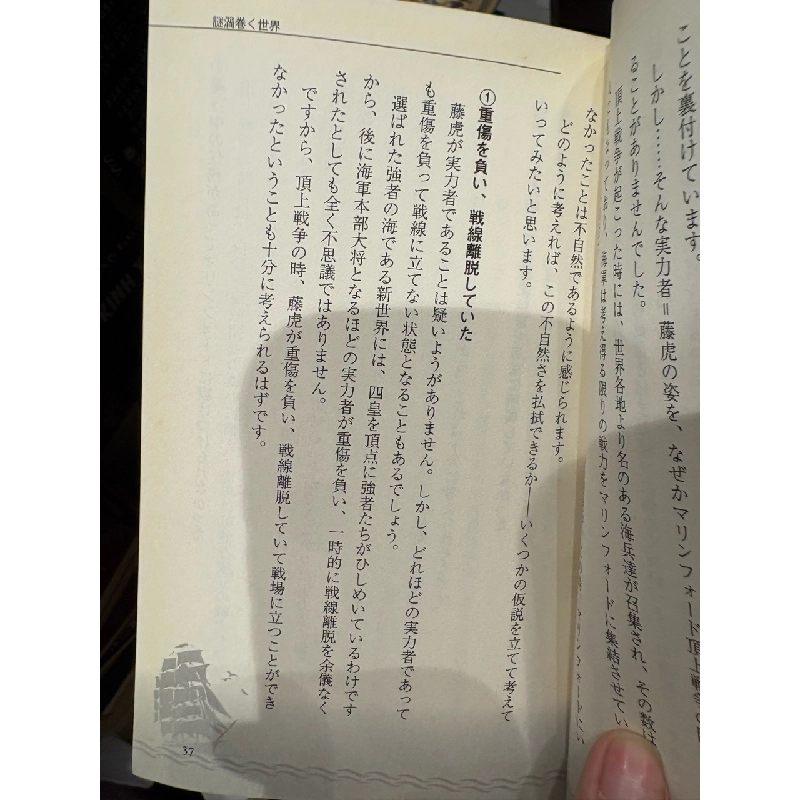 ことを裏付けています。
しかし……そんな実力者＝藤虎の姿を、なぜかマリンフォード頂上戦争の
ることがありませんでした。
頂上戦争が起こった時には、世界各地より名のある海兵達が召集され、その数は
海軍は考え得る限りの戦力をマリンフォードに集結させてい
なかったことは不自然であるように感じられます。
どのように考えれば、この不自然さを払拭できるか──いくつかの仮説を立てて考えて
いってみたいと思います。
①重傷を負い、戦線離脱していた
藤虎が実力者であることは疑いようがありません。しかし、どれほどの実力者であって
も重傷を負って戦線に立てない状態となることもあるでしょう。
選ばれた強者の海である新世界には、四皇を頂点に強者たちがひしめいているわけです
から、後に海軍本部大将となるほどの実力者が重傷を負い、一時的に戦線離脱を余儀なく
されたとしても全く不思議ではありません。
ですから、頂上戦争の時、藤虎が重傷を負い、戦線離脱していて戦場に立つことができ
なかったということも十分に考えられるはずです。
謎渦巻く世界
37